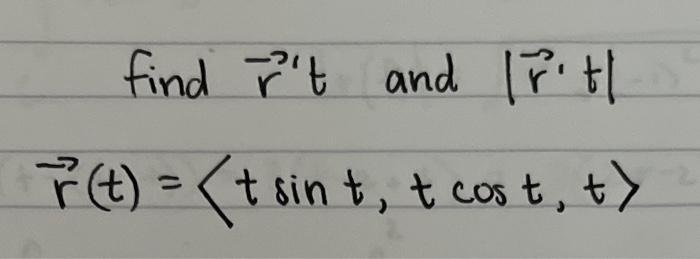 find r⃗'t and |r⃗'t|
r⃗(t) = ⟨t sin t, t cos t, t⟩